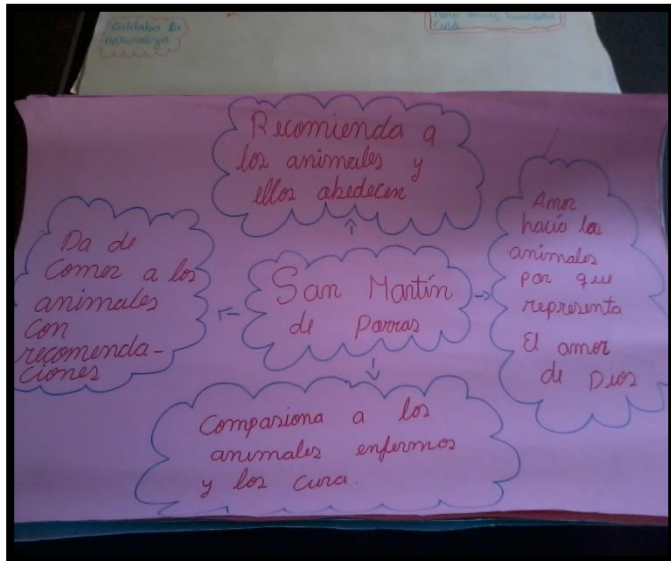 cuidaba la
naturaleza
cura
Recomienda a
los animales y
ellos obedecen
Da de
comer a los
animales
con
recomenda-
ciones
San Martín
de Porras
Amor
hacia los
animales
por que
representa
El amor
de Dios
Compasiona a los
animales enfermos
y los cura.